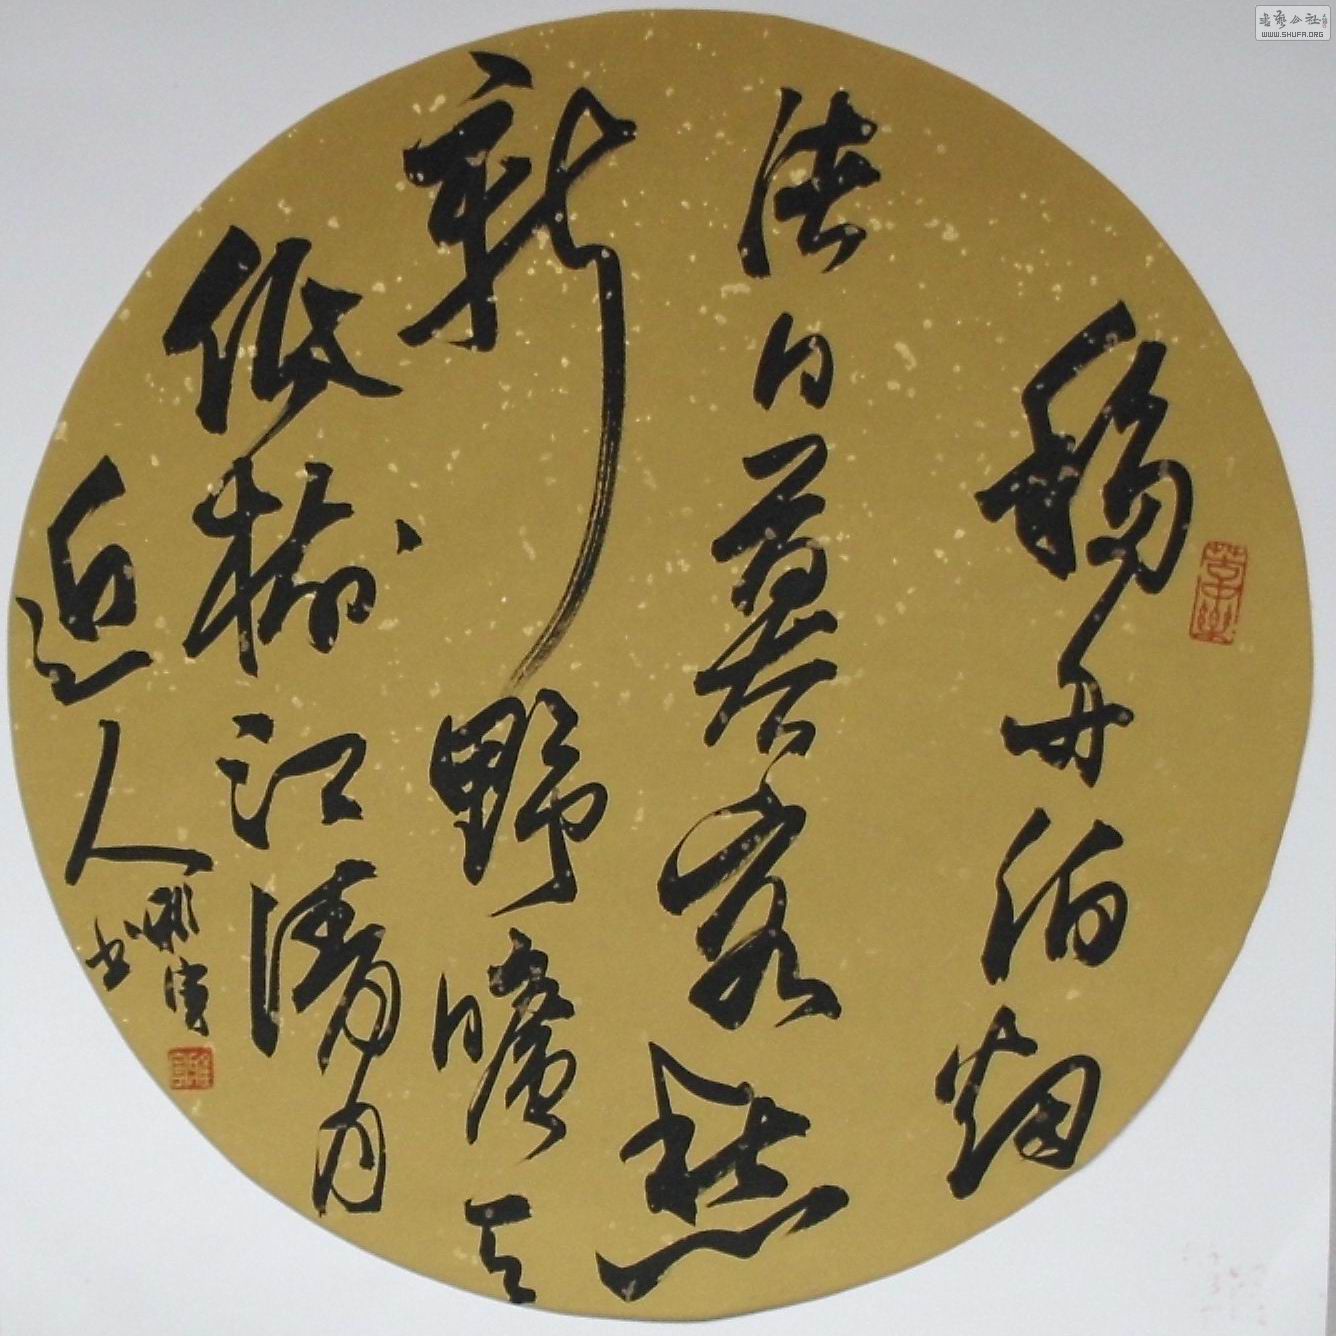 移舟泊烟
渚日暮客愁
新野曠天
低樹江清月
近人
书
書藝公社
WWW.SHUFA.ORG